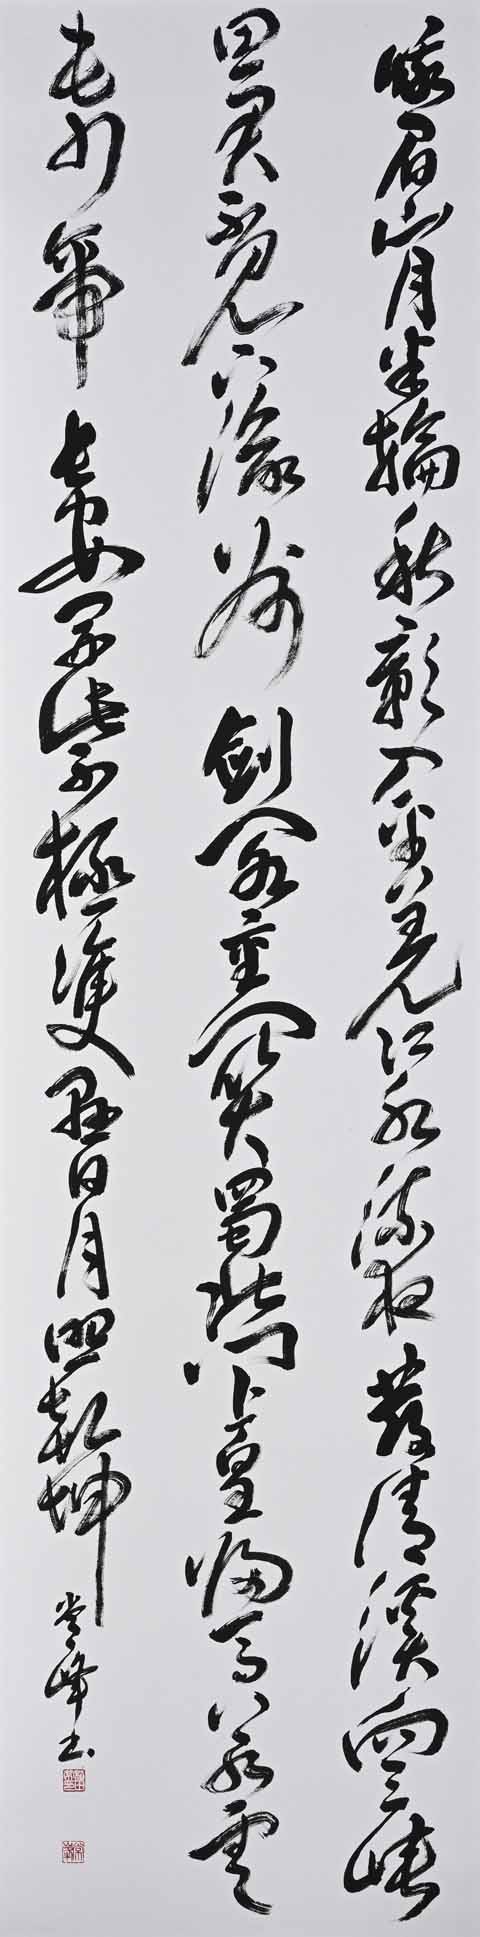 峨眉山月半輪秋影入平羌江水流夜發清溪向三峽
思君不見下渝州劍閣重關蜀北門上皇歸馬若雲
屯少帝長安開紫極雙懸日月照乾坤
峰書